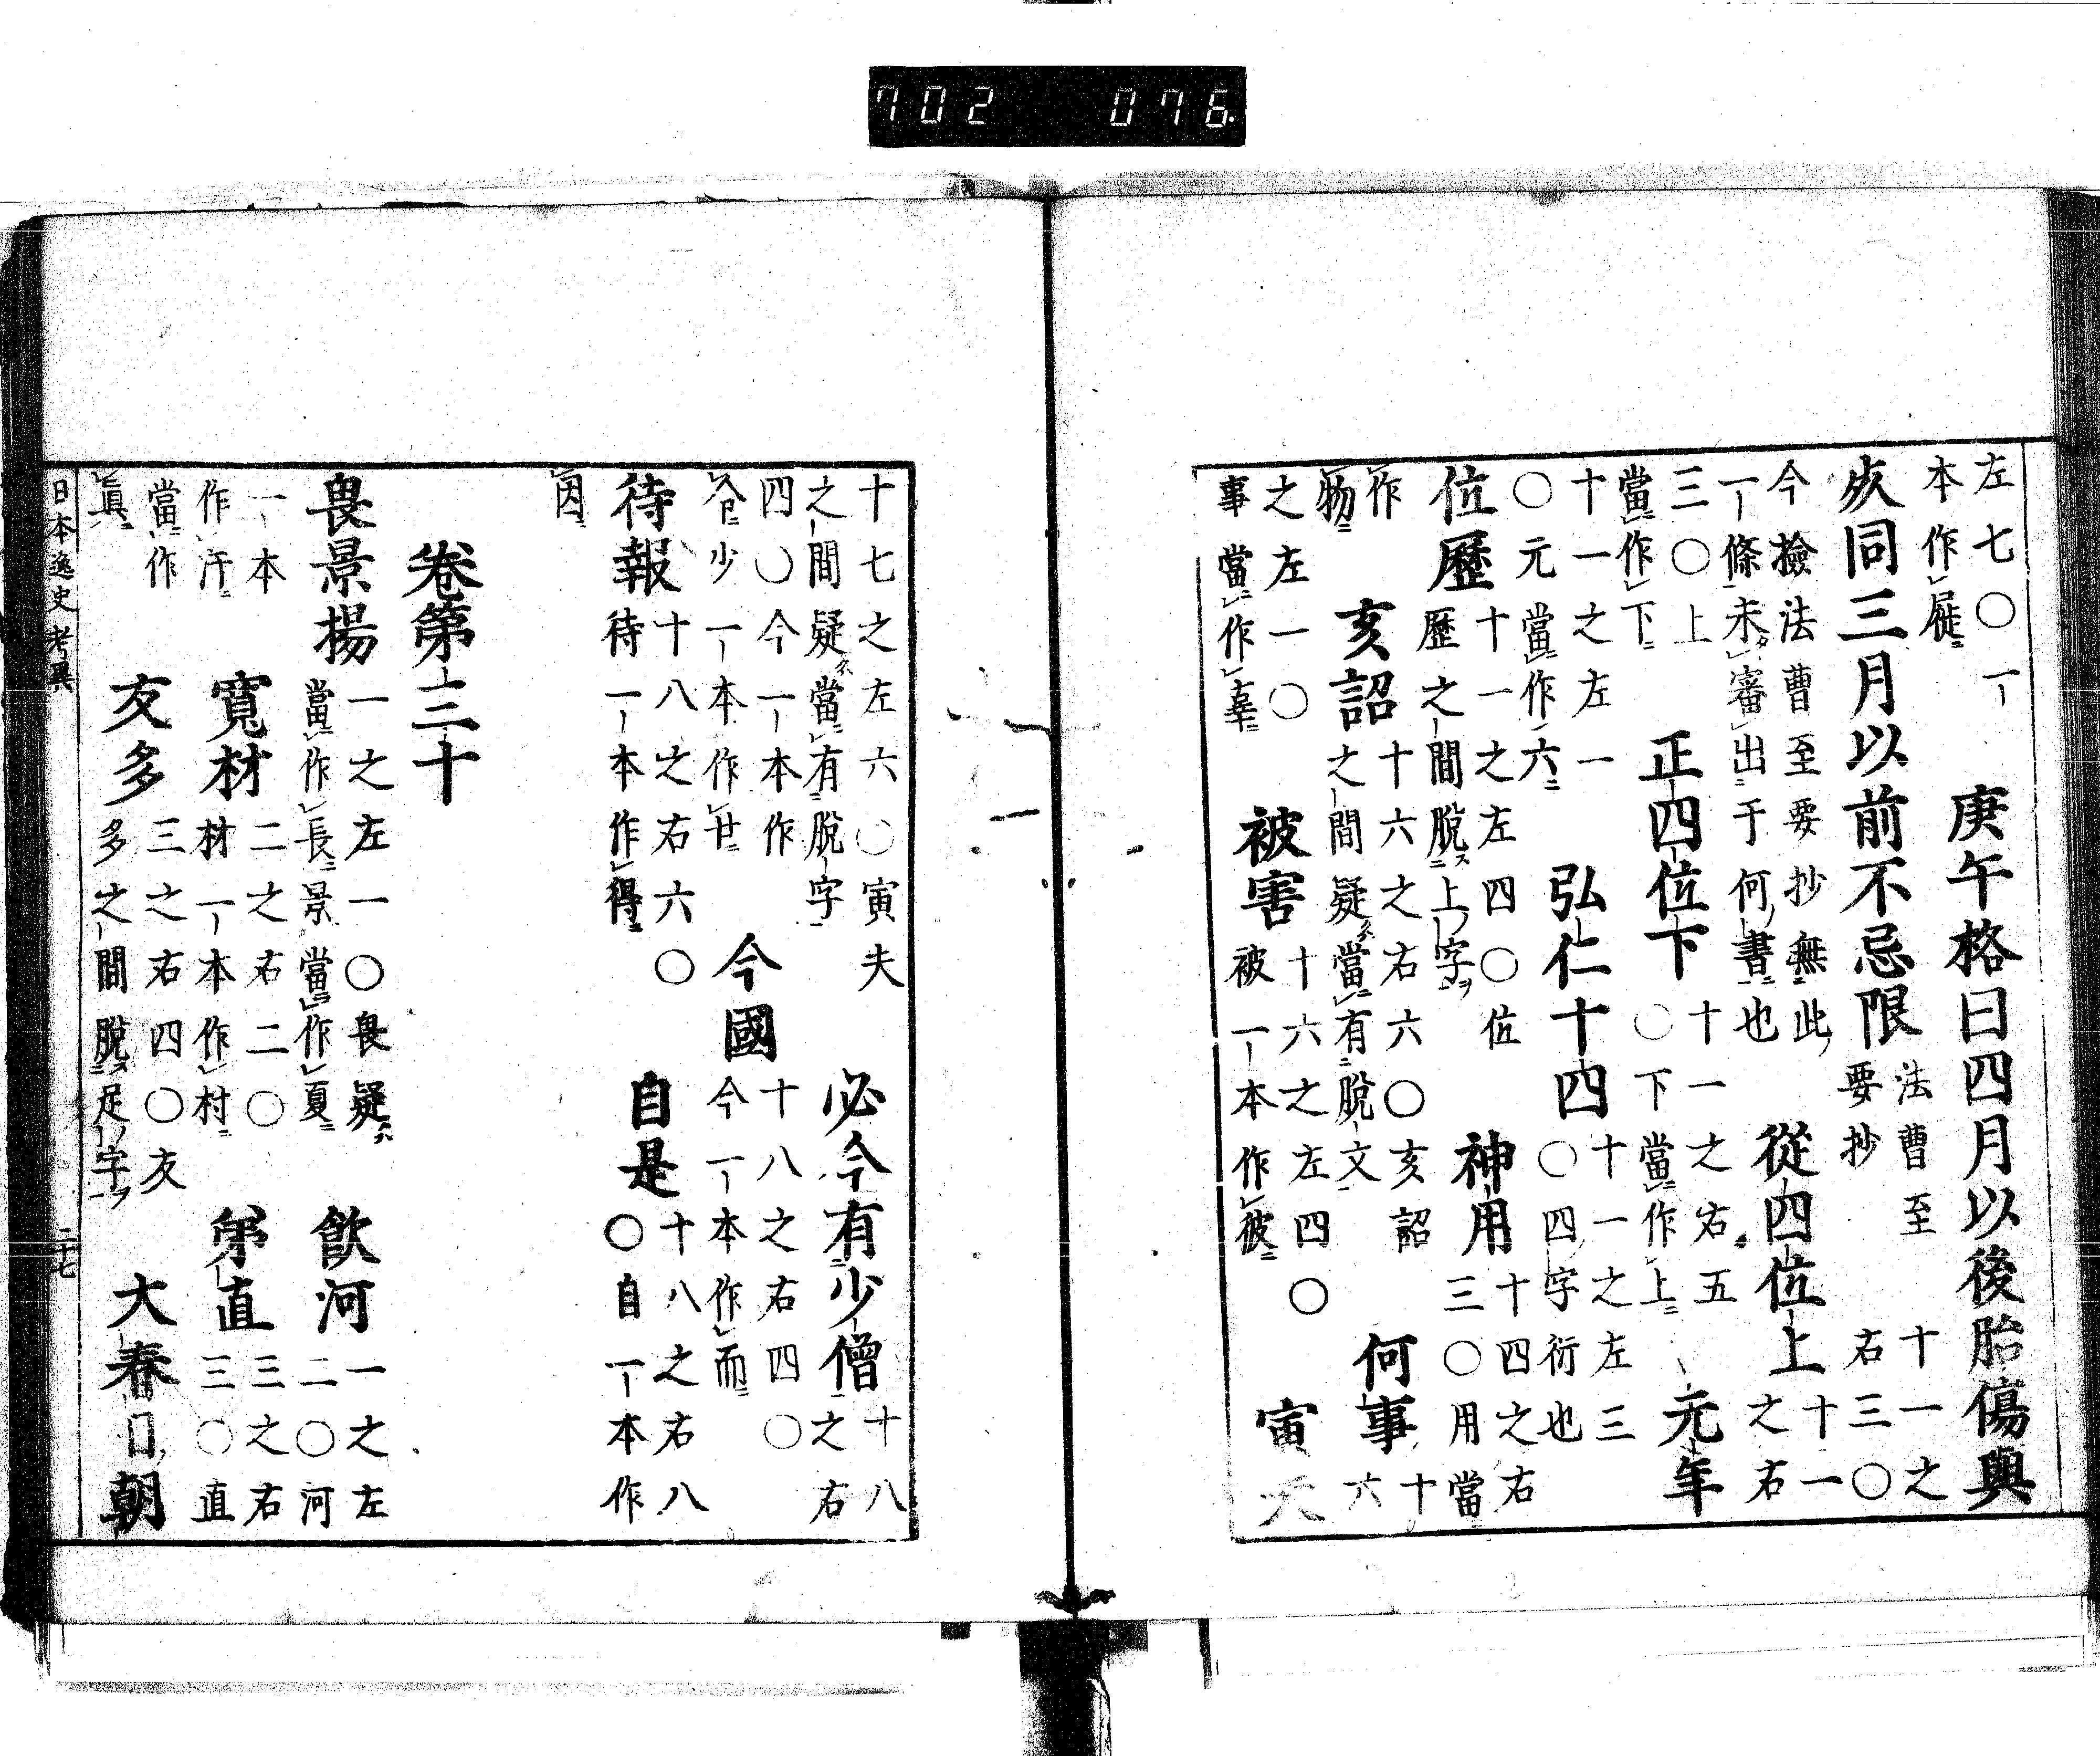 702 076
左七〇一本作屣 庚午格曰四月以後胎傷與
疾同三月以前不忌限 法曹至要抄 十一之右三〇
今撿法曹至要抄無此一條未審出于何書也 從四位上 十一之右
三〇上當作下 正四位下 十一之右五〇下當作上 元年
十一之左一〇元當作六 弘仁十四 十一之左三〇四字衍也
位歷 十一之左四〇位歷之間脫上字 神用 十四之右三〇用當
作物 亥詔 十六之右六〇亥詔之間疑當有脫文 何事 十六
之左一〇事當作辜 被害 十六之左四〇被一本作彼 寅夫
十七之左六〇寅夫之間疑當有脫字 必今有少僧 十八之右
四〇今一本作令少一本作廿 今國 十八之右四〇今一本作而
待報 十八之右六〇待一本作得 自是 十八之右八〇自一本作
因
卷第三十
畏景揚 一之左一〇畏疑當作長景當作夏 飲河 一之左二〇河
一本作汗 寬材 二之右二〇材一本作村 第直 三之右三〇直
當作眞 友多 三之右四〇友多之間脫足字 大春日朝
日本逸史考異 二十七